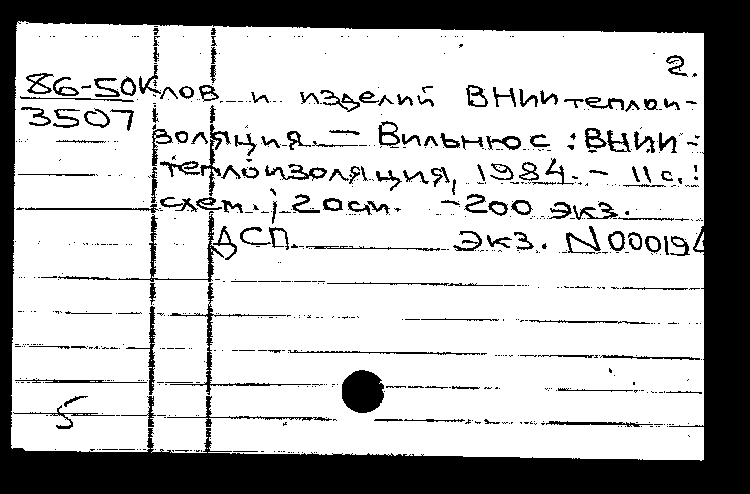 2.
86-50к лов и изделий ВНИИтеплои-
3507
золяция. — Вильнюс : ВНИИ-
теплоизоляция, 1984. - 11 с. :
схем. ; 20 см. - 200 экз.
ДСП. экз. N 000194
5